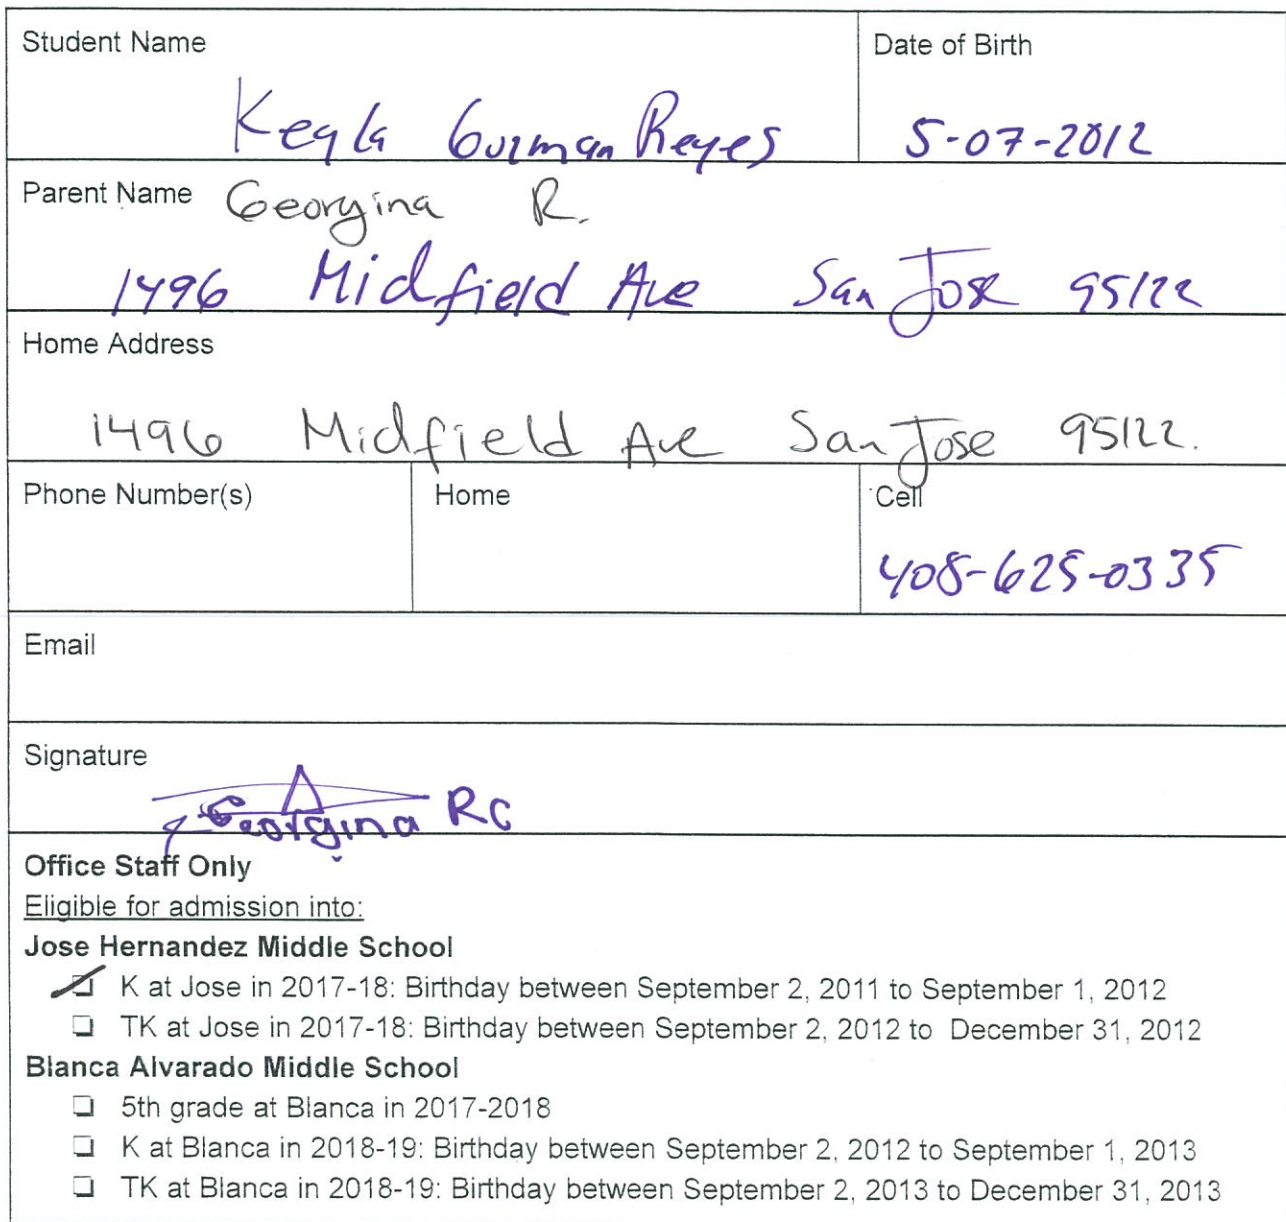 Student Name
Date of Birth
Keyla Guzman Reyes
5-07-2012
Parent Name Georgina R.
1496 Midfield Ave San Jose 95122
Home Address
1496 Midfield Ave San Jose 95122.
Phone Number(s)
Home
Cell
408-625-0335
Email
Signature
Georgina RC
Office Staff Only
Eligible for admission into:
Jose Hernandez Middle School
K at Jose in 2017-18: Birthday between September 2, 2011 to September 1, 2012
TK at Jose in 2017-18: Birthday between September 2, 2012 to December 31, 2012
Blanca Alvarado Middle School
5th grade at Blanca in 2017-2018
K at Blanca in 2018-19: Birthday between September 2, 2012 to September 1, 2013
TK at Blanca in 2018-19: Birthday between September 2, 2013 to December 31, 2013